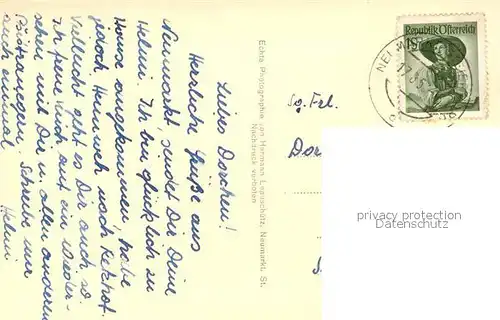 Liebes Dorchen!
Herzliche Grüße aus
Neumarkt, sendet Dir Deine
Helmi. Ich bin glücklich zu
Hause angekommen, habe
jedoch Heimweh nach
Vielleicht geht es Dir auch so.
Ich freue mich auf ein Wieder-
sehen mit Dir u. allen anderen
Schreibe mir
auch einmal
Helmi
Echte Photographie von Hermann Lepuschütz, Neumarkt, St.
Nachdruck verboten
Republik Österreich
1S
NEUM
Frl.
Dor
privacy protection
Datenschutz